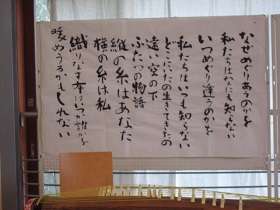 なぜめぐりあうのかを
私たちはなにも知らない
いつめぐり逢うのかを
私たちはいつも知らない
どこにいたの生きてきたの
遠い空の下
ふたつの物語
縦の糸はあなた
横の糸は私
織りなす布はいつか誰かを
暖めうるかもしれない